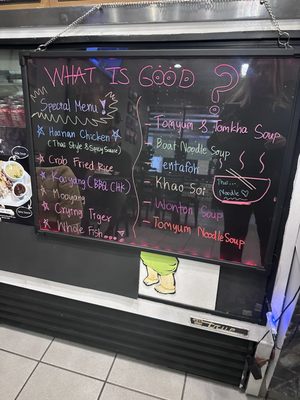 WHAT IS GOOD?
Special Menu
Hainan Chicken
(Thai Style & Spicy Sauce)
Crab Fried Rice
Kaiyang (BBQ CHK)
Mooyang
Crying Tiger
Whole Fish....
Tomyum & Tomkha Soup
Boat Noodle
Yentafoh
Khao Soi
Wonton Soup
Tomyum Noodle Soup
Thai
Noodle